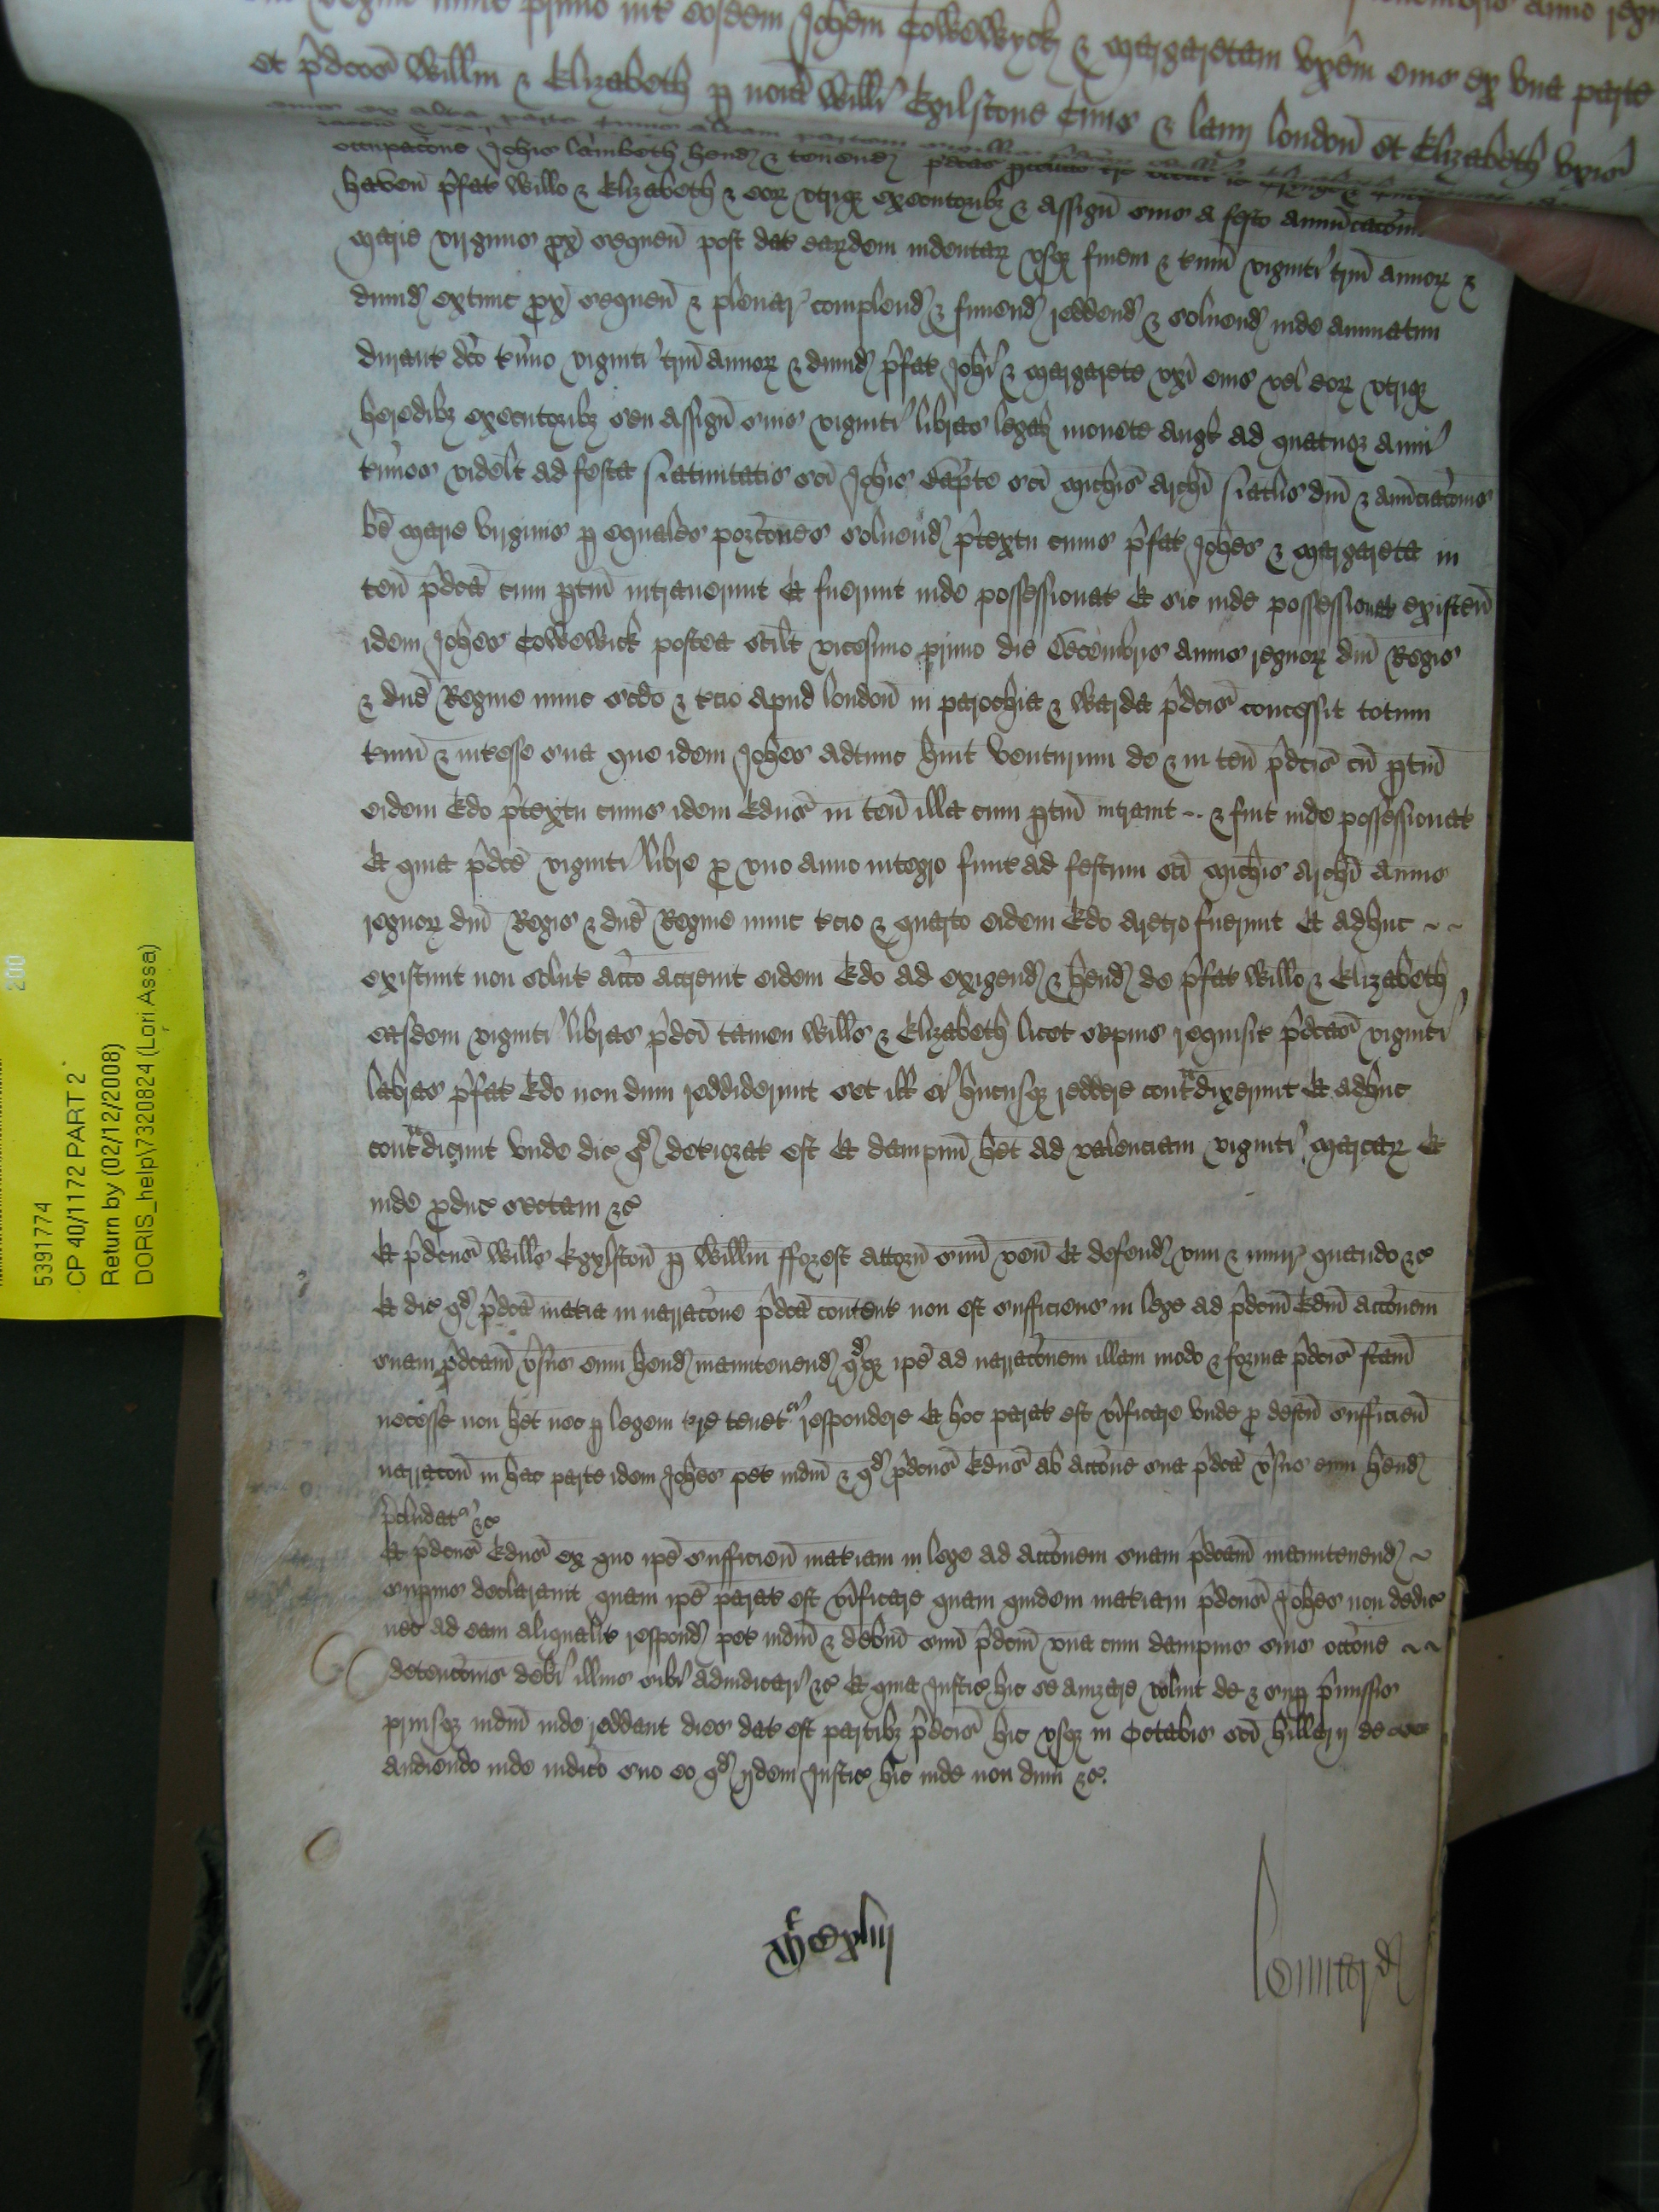 nunc primo int eosdem Johem Cowewyck & Margaretam vxem eius ex vna parte
et pdcos Willm & Elizabeth p noia Willi Egilstone Ciuis & London et Elizabeth vxis
eius ex altera parte
occupacone Johis Lambeth hend & tenend
haben pfat Willo & Elizabeth & eor vtriq executoribz & assign suis a festo Annuciacois
Marie virginis px sequen post dat eardem indentar vsq finem & tmin viginti triu annor &
dimid extunc px sequen & plenar complend & finiend reddend & soluend inde annuatim
durant dco tmino viginti triu annor & dimid pfat Johi & Margarete vxi eius vel eor vtriq
heredibz executoribz seu assign suis viginti libras legal monete Angl ad quatuor anni
tmios videlt ad festa Natiuitatis sci Johis Bapte sci Michis Archi Natlis dni & Anuciacois
be Marie virginis p equales porcones soluend ptextu cuius pfat Johes & Margareta in
ten pdca cum ptin intrauerunt et fuerunt inde possessionat et sic inde possessionat existen
idem Johes Cowewick postea scilt vicesimo primo die Decembris annis regnor dni Regis
& dne Regine nunc scdo & tcio apud London in parochia & Warda pdcis concessit totum
tmin & intesse sua que idem Johes adtunc huit venturum de & in ten pdcis cu ptin
eidem Edo ptextu cuius idem Edus in ten illa cum ptin intrauit & fuit inde possessionat
Et quia pdce viginti libre p vno anno integro finit ad festum sci Michis Archi annis
regnor dni Regis & dne Regine nunc tcio & quarto eidem Edo aretro fuerunt et adhuc
existunt non solut acco accreuit eidem Edo ad exigend & hend de pfat Willo & Elizabeth
easdem viginti libras pdci tamen Wills & Elizabeth licet sepius requisit pdcas viginti
libras pfat Edo non dum reddiderunt set ill ei hucusq reddere contradixerunt et adhuc
contradicunt vnde dic qd detiorat est et dampnu het ad valenciam viginti marcar et
inde pduc sectam &c
Et pdcus Wills Egylston p Willm fforest attorn suu ven et defend vim & iniur quando &c
Et dic qd pdca matia in narracone pdca content non est sufficiens in lege ad pdcm Edm accoem
suam pdcam vsus eum hend manutenend qdq ipe ad narraconem illam modo & forma pdcis fcam
necesse non het nec p legem tre tenet respondere et hoc parat est vificare vnde p defcu sufficien
narracon in hac parte idem Johes pet iudm & qd pdcus Edus ab accone sua pdca vsus eum hend
pcludat &c
Et pdcus Edus ex quo ipe sufficien matiam in lege ad accoem suam pdcam manutenend
supius declarauit quam ipe parat est vificare quam quidem matiam pdcus Johes non dedic
nec ad eam aliqualit respond pet iudm & debm suu pdcm vna cum dampnis suis occone
detencois debi illius sibi adiudicari &c Et quia Justic hic se auizare volunt de & sup pmissis
priusq iudm inde reddant dies dat est partibz pdcis hic vsq in Octabis sci Hillarij de
audiendo inde iudico suo eo qd ijdem Justic hic inde non dum &c.
Lonnerd
5391774
CP 40/1172 PART 2
Return by (02/12/2008)
DORIS_help\7320824 (Lori Assa)
200